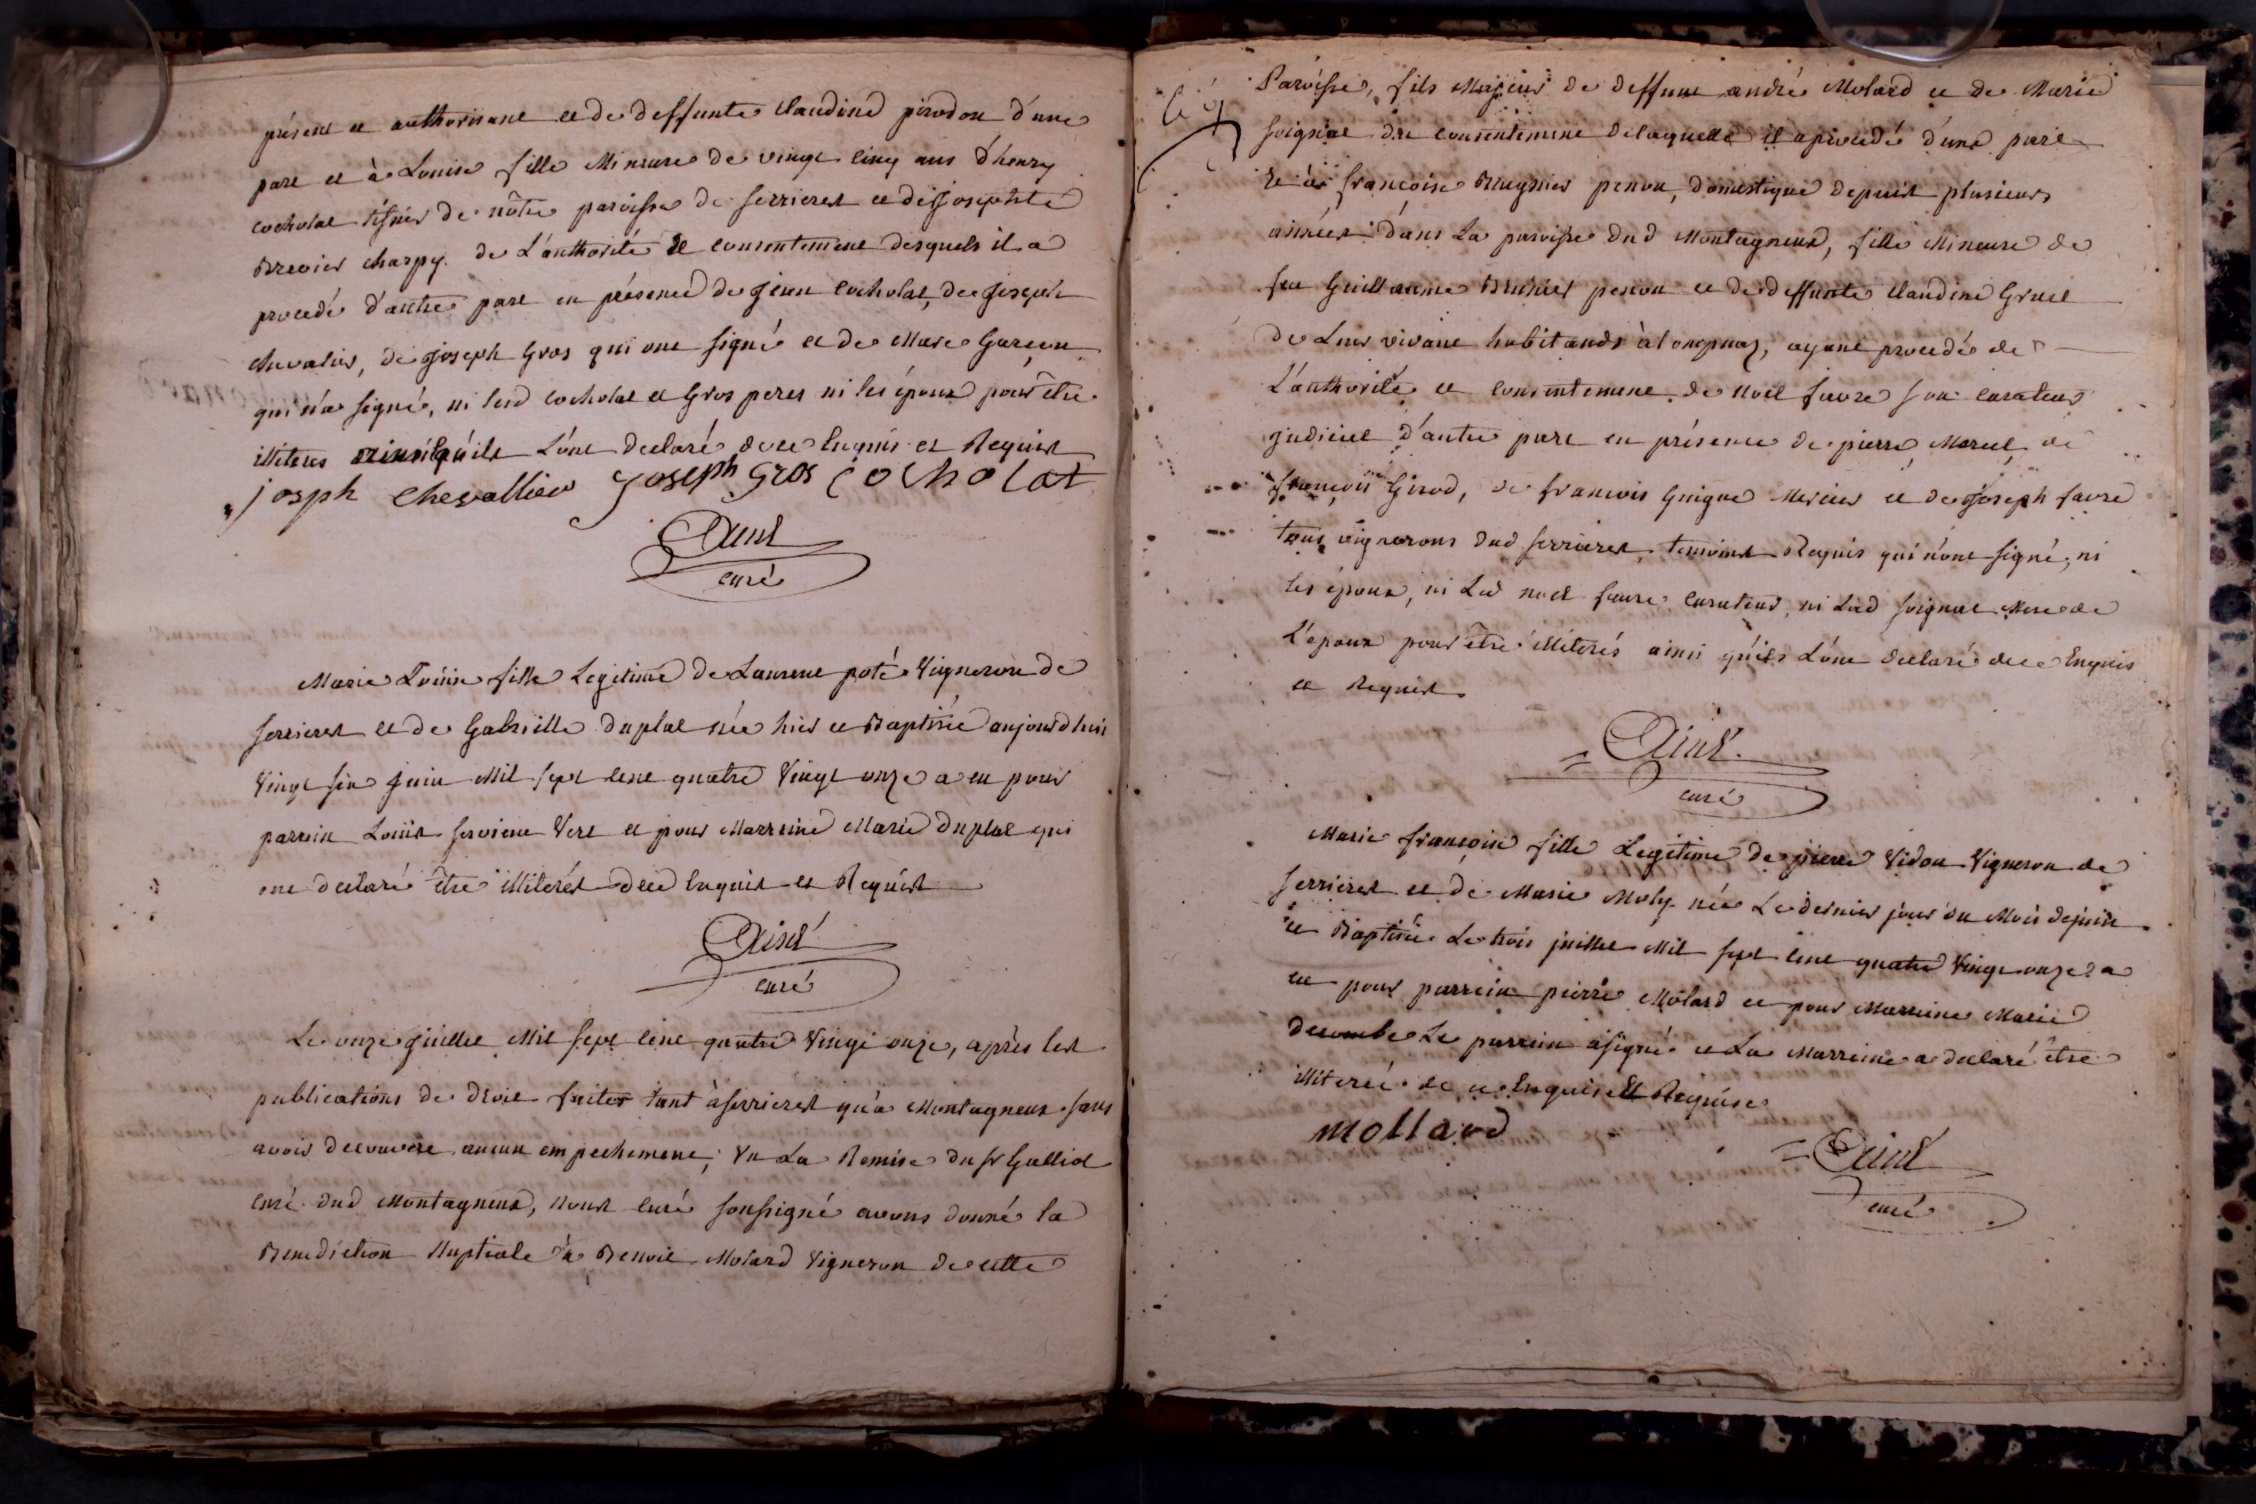 présent et authorisant et de deffunte Claudine pirodon d'une
part et à Louise fille Mineure de vingt cinq ans d'henry
cocholat tisnier de nôtre paroisse de serrieres et de Josephte
Brevier charpy de L'authorité et consentement desquels il a
procedé d'autre part en présence de Jean cocholat, de Joseph
chevalier, de Joseph Gros qui ont signé et de Marc Garçon
qui n'a signé, ni lesd cocholat et Gros peres ni les époux pour être
illiteres ainsi qu'ils L'ont declaré de ce Enquis et Requis
josph chevallier Joseph gros cocholat
curé
Marie Loüise fille Legitime de Laurent poté Vigneron de
serrieres et de Gabrielle duplat née hier et Baptisée aujourd'hui
Vingt six juin Mil sept cent quatre Vingt onze a eu pour
parrein Loüis Vert et pour Marreine Marie duplat qui
ont declaré être illiterés de ce Enquis et Requis
curé
Le onze juillet Mil sept cent quatre Vingt onze, après les
publications de droit faites tant à serrieres qu'a Montagneux sans
avoir decouvert aucun empechement, Vu La Remise du sr Galliot
curé dud Montagneux, Nous curé soussigné avons donné la
Benediction Nuptiale à Benoit Molard Vigneron de cette
Paroisse, fils Majeur de deffunt andré Molard et de Marie
soignat du consentement de laquelle il a procedé d'une part
et à françoise penon, domestique depuis plusieurs
années dans La paroisse dud Montagneux, fille Mineure de
feu Guillaume penon et de deffunte Claudine Gruel
de Leur vivant habitands à ayant procedé de
L'authorité et consentement de noël favre son curateur
judiciel d'autre part en présence de pierre Marcel, de
françois Girod, de francois Guigue Mercier et de Joseph favre
tous vignerons dud serrieres temoins Requis qui n'ont signé, ni
les époux, ni Led noel favre curateur, ni Lad soignat Mere de
L'epoux pour être illiterés ainsi qu'ils L'ont declaré de ce Enquis
et Requis
curé
Marie françoise fille Legitime de pierre Vidon Vigneron de
serrieres et de Marie Moly née Le dernier jour du Mois de juin
et Baptisée Le trois juillet Mil sept cent quatre Vingt onze a
eu pour parrein pierre Molard et pour Marreine Marie
decombe Le parrein a signé et La Marreine a declaré être
illiterée de ce Enquise Et Requise
mollard
curé